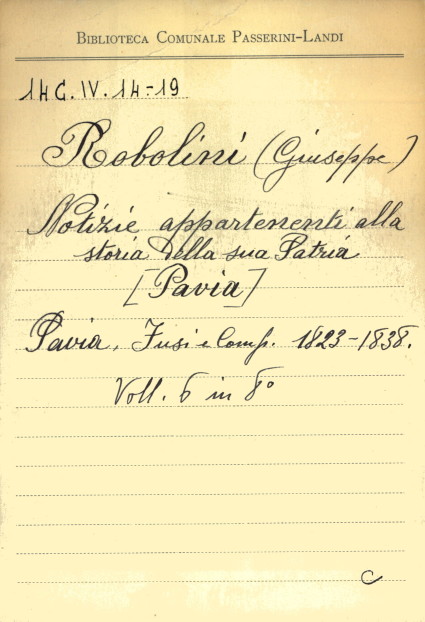 BIBLIOTECA COMUNALE PASSERINI-LANDI
14 C. IV. 14-19
Robolini (Giuseppe)
Notizie appartenenti alla
storia della sua Patria
[Pavia]
Pavia, Fusi e Comp. 1823-1838.
Voll. 6 in 8º
C